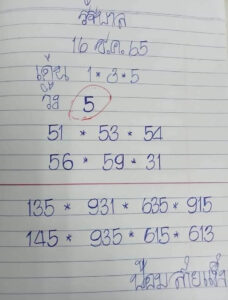 รัฐบาล
16 ธ.ค. 65
เด่น 1 * 3 * 5
วิ่ง 5
51 * 53 * 54
56 * 59 * 31
135 * 931 * 635 * 915
145 * 935 * 615 * 613